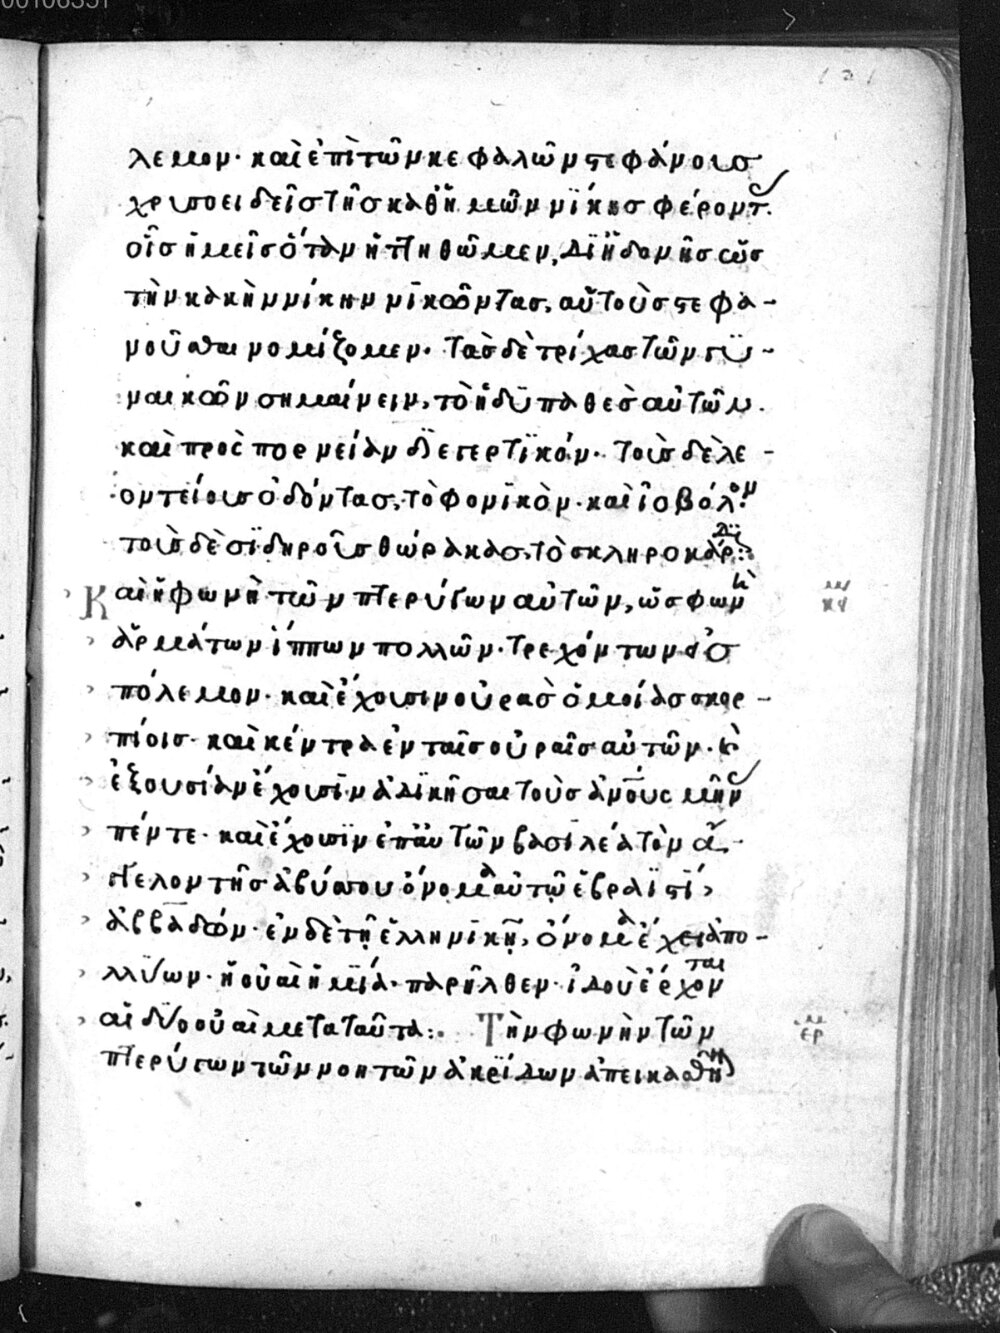 λεμον· καὶ ἐπὶ τῶν κεφαλῶν στεφάνοις
χρυσοειδεῖς τῆς καθ' ἡμῶν νίκης φέροντ.
οἷς ἡμεῖς ὅταν ἡττηθῶμεν, δι' ἡδονῆς ὡς
τὴν κακὴν νίκην νικῶντας, αὐτοὺς στεφα-
νοῦσθαι νομίζομεν· τὰς δὲ τρίχας τῶν γυ-
ναικῶν σημαίνειν, τὸ ἡδυπαθὲς αὐτῶν.
καὶ πρὸς πορνείαν διεγερτικόν· τοὺς δὲ λε-
οντείους ὀδόντας, τὸ φονικὸν· καὶ ἰοβόλον·
τοὺς δὲ σιδηροῦς θώρακας, τὸ σκληροκάρδιον:
Καὶ ἡ φωνὴ τῶν πτερύγων αὐτῶν, ὡς φωνὴ
ἁρμάτων ἵππων πολλῶν· τρεχόντων εἰς
πόλεμον· καὶ ἔχουσιν οὐρὰς ὁμοίας σκορ-
πίοις· καὶ κέντρα ἐν ταῖς οὐραῖς αὐτῶν· κὶ
ἐξουσίαν ἔχουσιν ἀδικῆσαι τοὺς ἀνους μῆν
πέντε· καὶ ἔχουσιν ἐπ' αὐτῶν βασιλέα τὸν ἄγ-
γελον τῆς ἀβύσσου ὄνομα αὐτῷ ἑβραϊστί,
ἀββαδών· ἐν δὲ τῇ ἑλληνικῇ, ὄνομα ἔχει ἀπο-
λλύων· ἡ οὐαὶ ἡ μία· παρῆλθεν· ἰδοὺ ἔρχονται
αἱ δύο οὐαὶ μετὰ ταῦτα:· Τὴν φωνὴν τῶν
πτερύγων τῶν νοητῶν ἀκρίδων ἀπεικασθῆν
κν
ερ